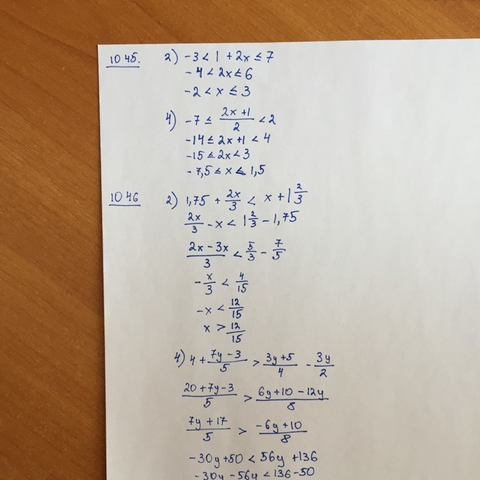 1045. 2) -3 < 1 + 2x ≤ 7
-4 < 2x ≤ 6
-2 < x ≤ 3
4) -7 ≤ (2x + 1)/2 < 2
-14 ≤ 2x + 1 < 4
-15 ≤ 2x < 3
-7,5 ≤ x ≤ 1,5
1046 2) 1,75 + 2x/3 < x + 1 2/3
2x/3 - x < 1 2/3 - 1,75
(2x - 3x)/3 < 5/3 - 7/5
-x/3 < 4/15
-x < 12/15
x > 12/15
4) 4 + (7y - 3)/5 > (3y + 5)/4 - 3y/2
(20 + 7y - 3)/5 > (6y + 10 - 12y)/8
(7y + 17)/5 > (-6y + 10)/8
-30y + 50 < 56y + 136
-30y - 56y < 136 - 50